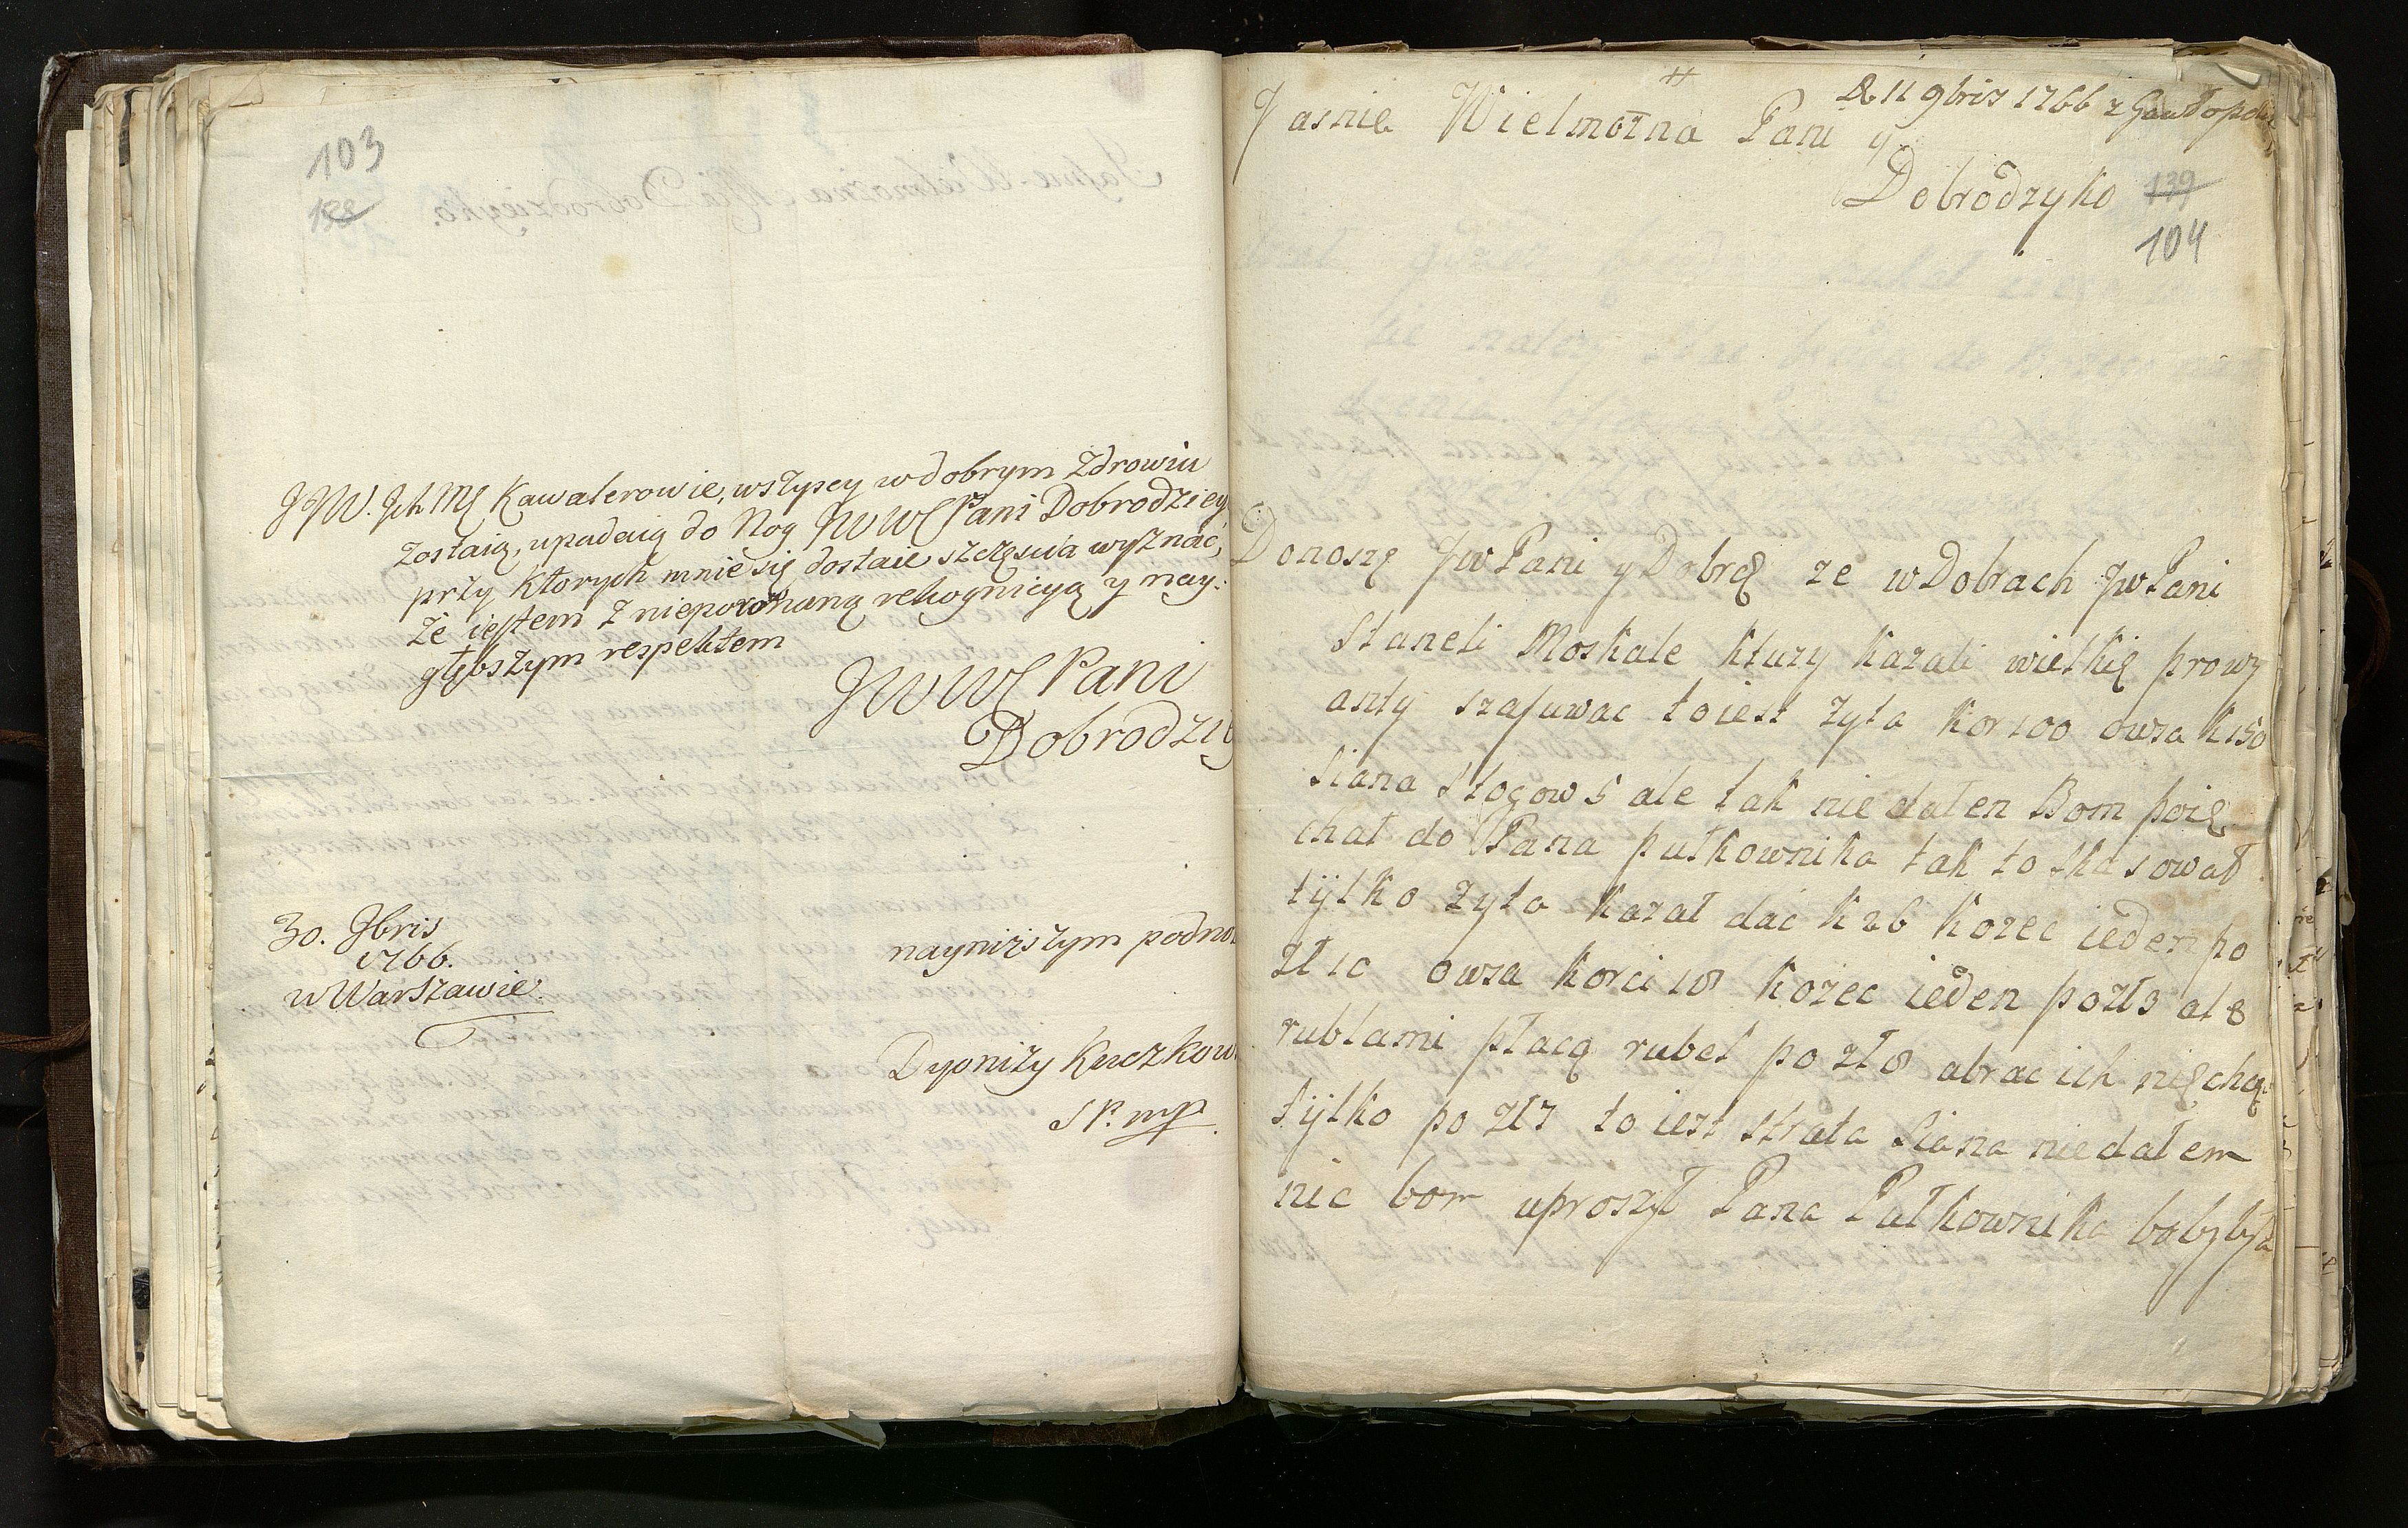 103
138
JJWW. Ich Mć Kawalerowie, wszyscy w dobrym zdrowiu
zostaią, upadaią do Nog JWWć Pani Dobrodziey
przy ktorych mnie się dostaie szczęscia wyznać,
że iestem z nieporownaną rekognicyą y nay-
głębszym respektem
JWWć Pani
Dobrodziey
nayniższym podno
30. Jbris
1766.
w Warszawie.
Dyonizy Kuczkow
SP. mp.
D 11 9bris 1766 z
Jasnie Wielmożna Pani y
Dobrodzyko
139
104
Donoszę JwPani y Dobrę ze w Dobrach JwPani
Staneli Moskale ktury kazali wielkię prowy
anty szafuwac toiest zyta kor 100 owsa k 150
Siana Stogow 5 ale tak nie dałen Bom poie
chał do Pana pułkownika tak to skasował
tÿlko zyta kazał dac k 26 korzec ieden po
zł 10 owsa korci 18 korzec ieden po zł 3 ale
rublami płacą rubel po zł 8 a brac ich niechcą
tÿlko po zł 7 to iest strata Siana nie dałem
nic bom uproszÿł Pana Pułkownika bobybyła